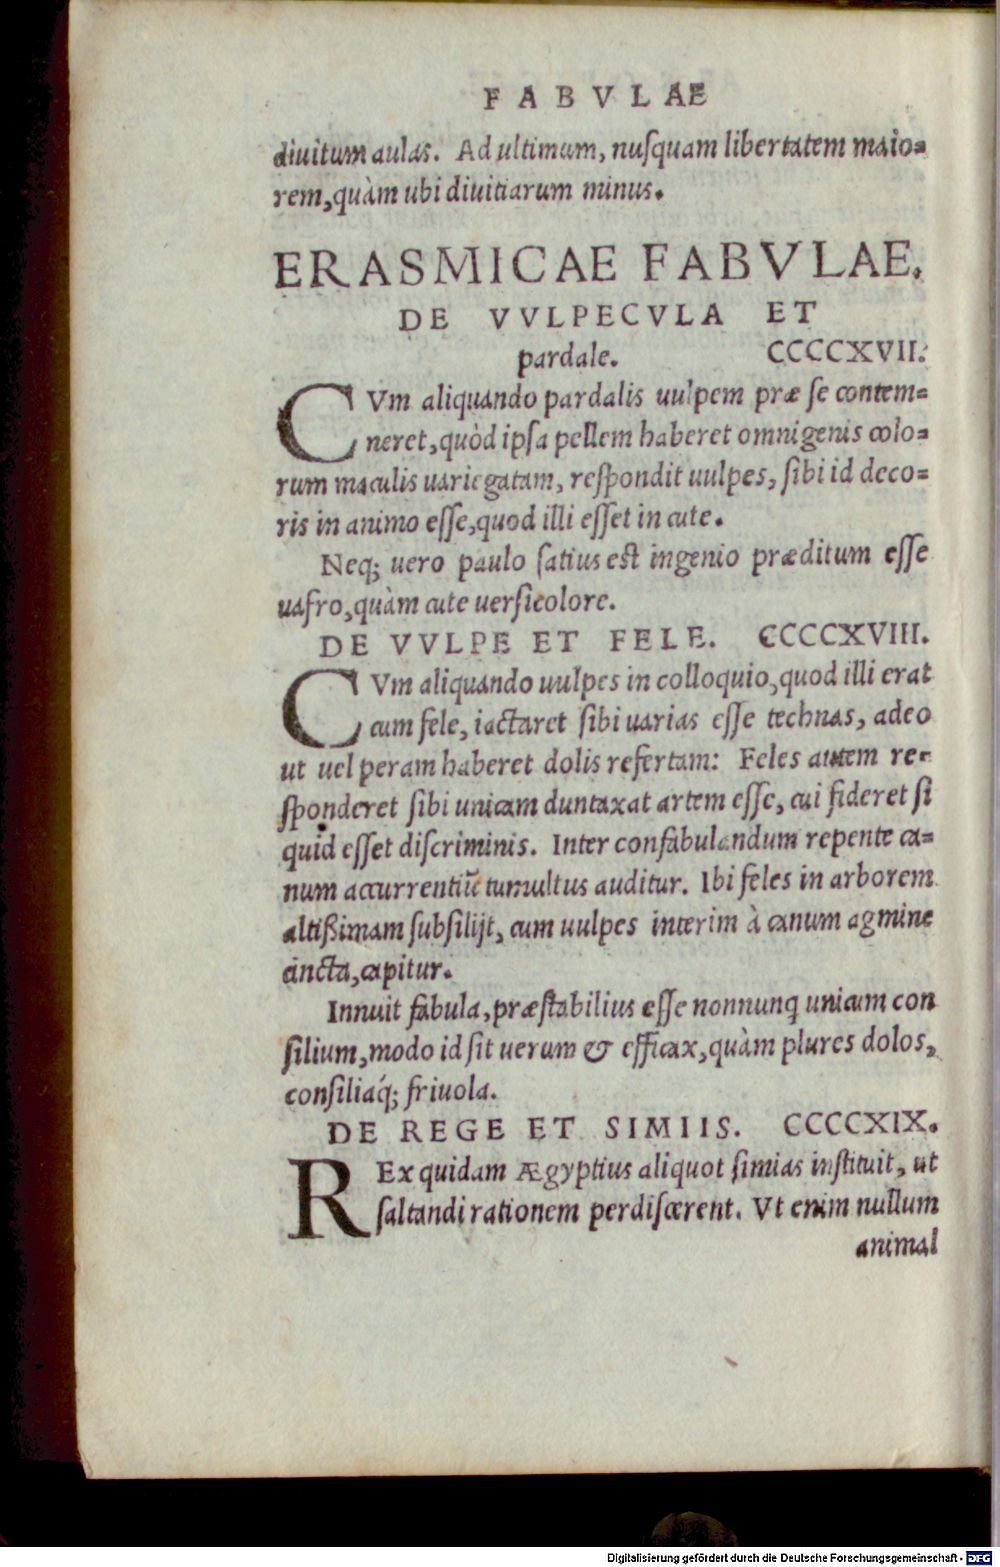 FABVLAE
diuitum aulas. Ad ultimum, nuſquam libertatem maio=
rem,quàm ubi diuitiarum minus.
ERASMICAE FABVLAE.
DE VVLPECVLA ET
pardale. CCCCXVII.
CVm aliquando pardalis uulpem præ ſe contem=
neret,quòd ipſa pellem haberet omnigenis colo=
rum maculis uariegatam, reſpondit uulpes, ſibi id deco=
ris in animo eſſe,quod illi eſſet in cute.
Neq; uero paulo ſatius est ingenio præditum eſſe
uafro,quàm cute uerſicolore.
DE VVLPE ET FELE. CCCCXVIII.
CVm aliquando uulpes in colloquio,quod illi erat
cum fele, iactaret ſibi uarias eſſe technas, adeo
ut uel peram haberet dolis refertam: Feles autem re=
ſponderet ſibi unicam duntaxat artem eſſe, cui fideret ſi
quid eſſet diſcriminis. Inter confabulandum repente ca=
num accurrentiũ tumultus auditur. Ibi feles in arborem
altiſsimam ſubſilijt, cum uulpes interim à canum agmine
cincta,capitur.
Innuit fabula,præſtabilius eſſe nonnunꝗ unicum con
ſilium,modo id ſit uerum & efficax,quàm plures dolos,
conſiliaq́; friuola.
DE REGE ET SIMIIS. CCCCXIX.
REx quidam Ægyptius aliquot ſimias inſtituit, ut
ſaltandi rationem perdiſcerent. Vt enim nullum
animal
Digitalisierung gefördert durch die Deutsche Forschungsgemeinschaft - DFG